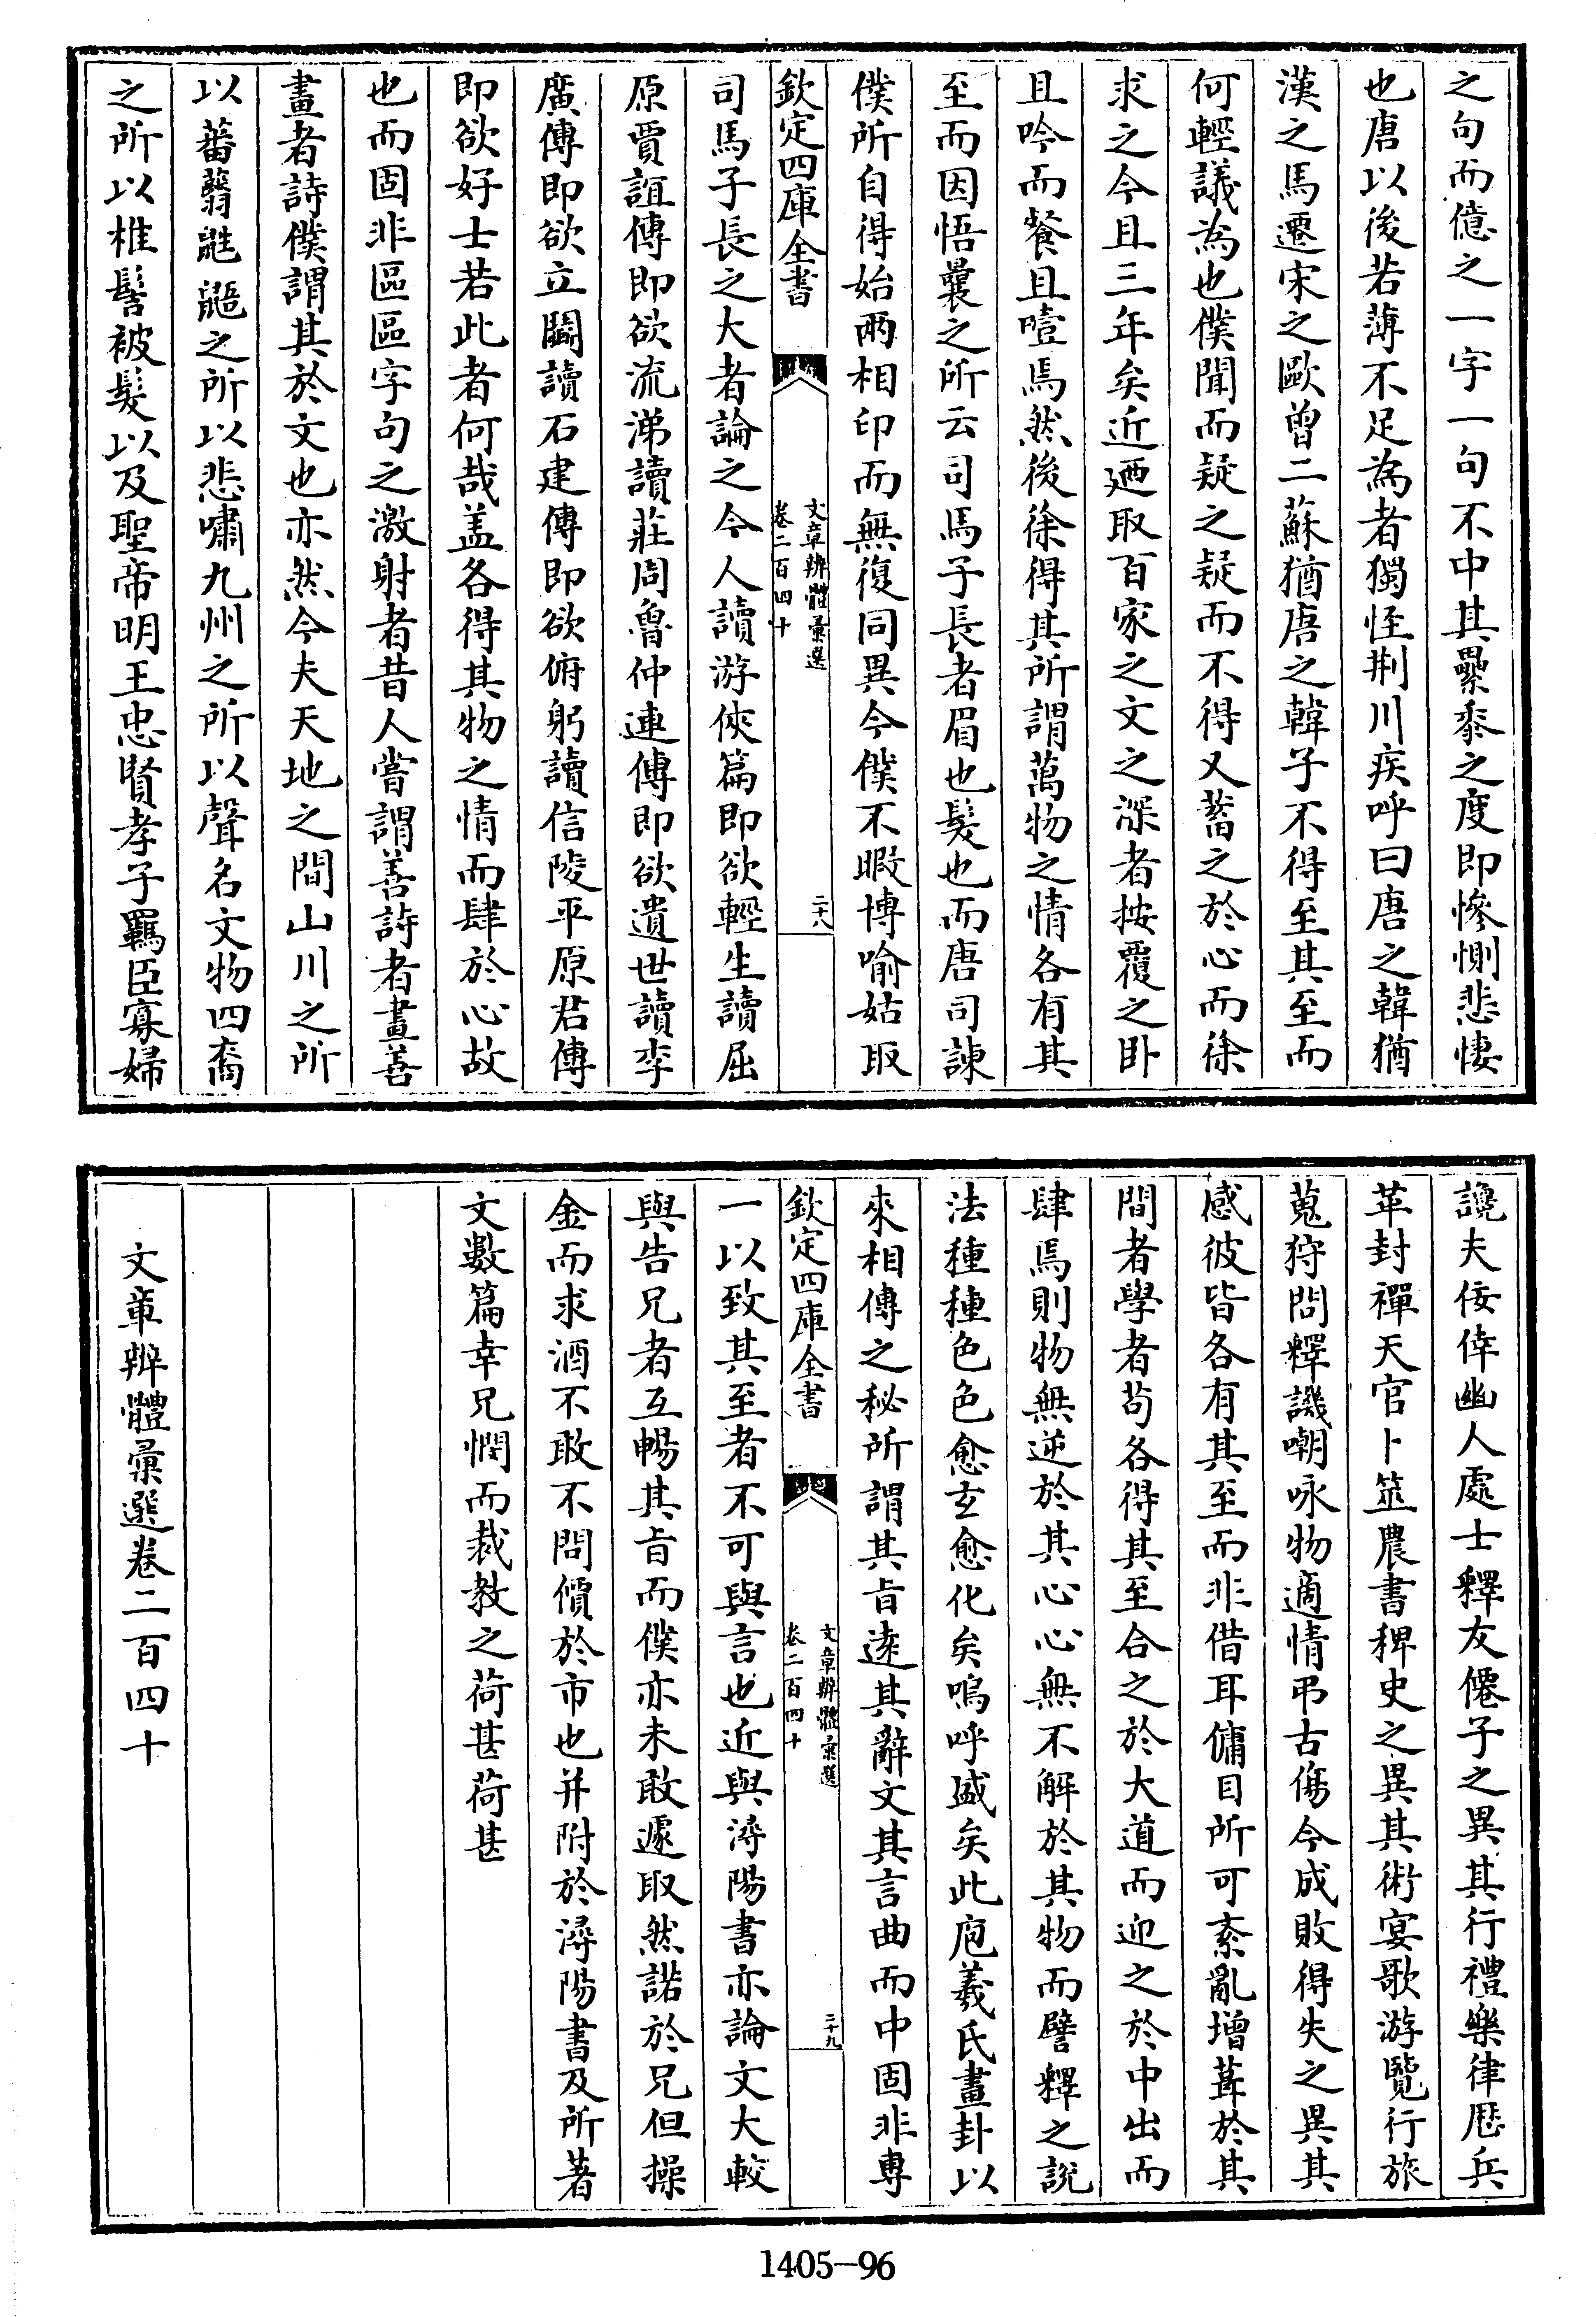 之句而億之一字一句不中其纍黍之度即慘惻悲悽
也唐以後若薄不足為者獨怪荆川疾呼曰唐之韓猶
漢之馬遷宋之歐曾二蘇猶唐之韓子不得至其至而
何輕議為也僕聞而疑之疑而不得又蓄之於心而徐
求之今且三年矣近廼取百家之文之深者按覆之卧
且吟而餐且噎焉然後徐得其所謂萬物之情各有其
至而因悟曩之所云司馬子長者眉也髮也而唐司諫
僕所自得始兩相印而無復同異今僕不暇博喻姑取
欽定四庫全書
文章辨體彙選
卷二百四十
二十八
司馬子長之大者論之今人讀游俠篇即欲輕生讀屈
原賈誼傳即欲流涕讀莊周魯仲連傳即欲遺世讀李
廣傳即欲立鬬讀石建傳即欲俯躬讀信陵平原君傳
即欲好士若此者何哉盖各得其物之情而肆於心故
也而固非區區字句之激射者昔人嘗謂善詩者畫善
畫者詩僕謂其於文也亦然今夫天地之間山川之所
以蕃蘙鼪鼯之所以悲嘯九州之所以聲名文物四裔
之所以椎髻被髮以及聖帝明王忠賢孝子羈臣寡婦
讒夫佞倖幽人處士釋友僊子之異其行禮樂律歷兵
革封禪天官卜筮農書稗史之異其術宴歌游覽行旅
蒐狩問釋譏嘲咏物適情弔古傷今成敗得失之異其
感彼皆各有其至而非借耳傭目所可紊亂增葺於其
間者學者苟各得其至合之於大道而迎之於中出而
肆焉則物無逆於其心心無不解於其物而譬釋之說
法種種色色愈玄愈化矣嗚呼盛矣此庖羲氏畫卦以
來相傳之秘所謂其旨遠其辭文其言曲而中固非專
欽定四庫全書
文章辨體彙選
卷二百四十
二十九
一以致其至者不可與言也近與潯陽書亦論文大較
與告兄者互暢其旨而僕亦未敢遽取然諾於兄但操
金而求酒不敢不問價於市也并附於潯陽書及所著
文數篇幸兄憫而裁教之荷甚荷甚
文章辨體彙選卷二百四十
1405—96